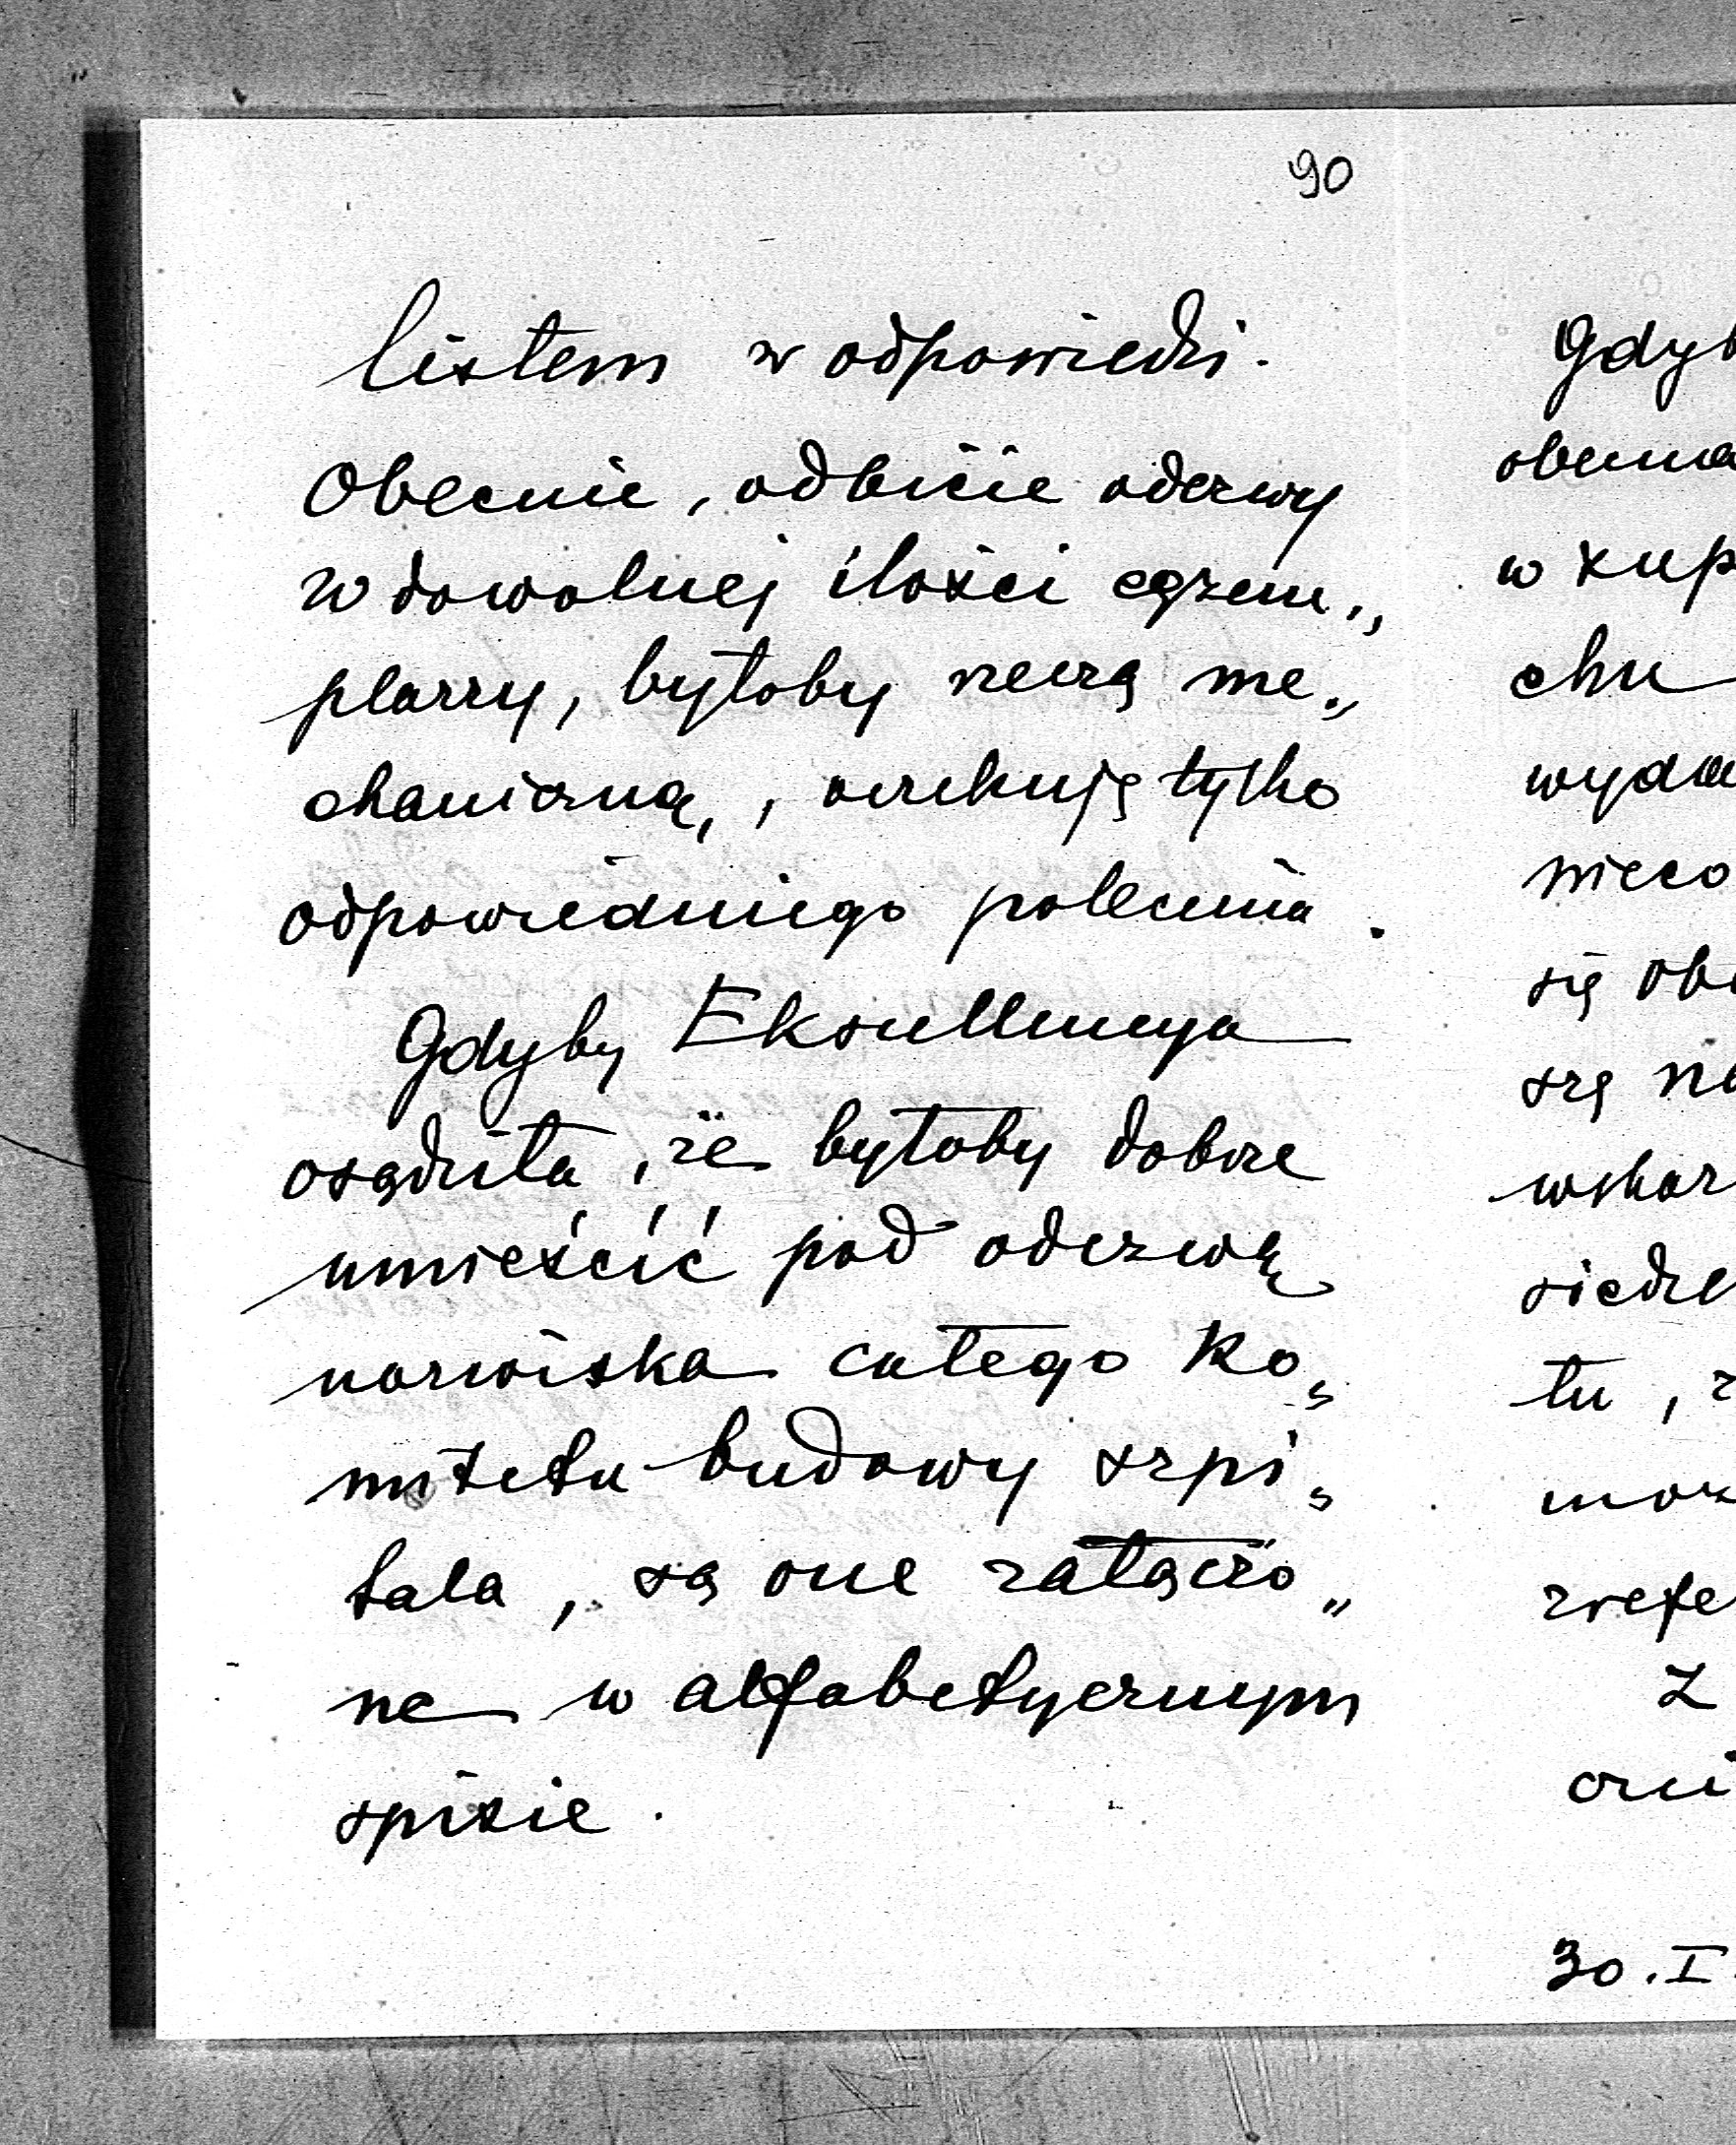 90
listem w odpowiedzi.
Obecnie, odbicie odezwy
w dowolnej ilości egzem„
plarzy, byłoby rzeczą me„
chaniczną, oczekuję tylko
odpowiedniego polecenia.
Gdyby Ekscellencya
osądziła, że byłoby dobrze
umieścić pod odezwą
nazwiska całego ko„
mitetu budowy szpi„
tala, są one załączo„
ne w alfabetycznym
spisie.
Gdyb
obecna
w
chu
wyda
nieco
się obe
szą
wskaz
siedze
tu,
moż
Z
30.I